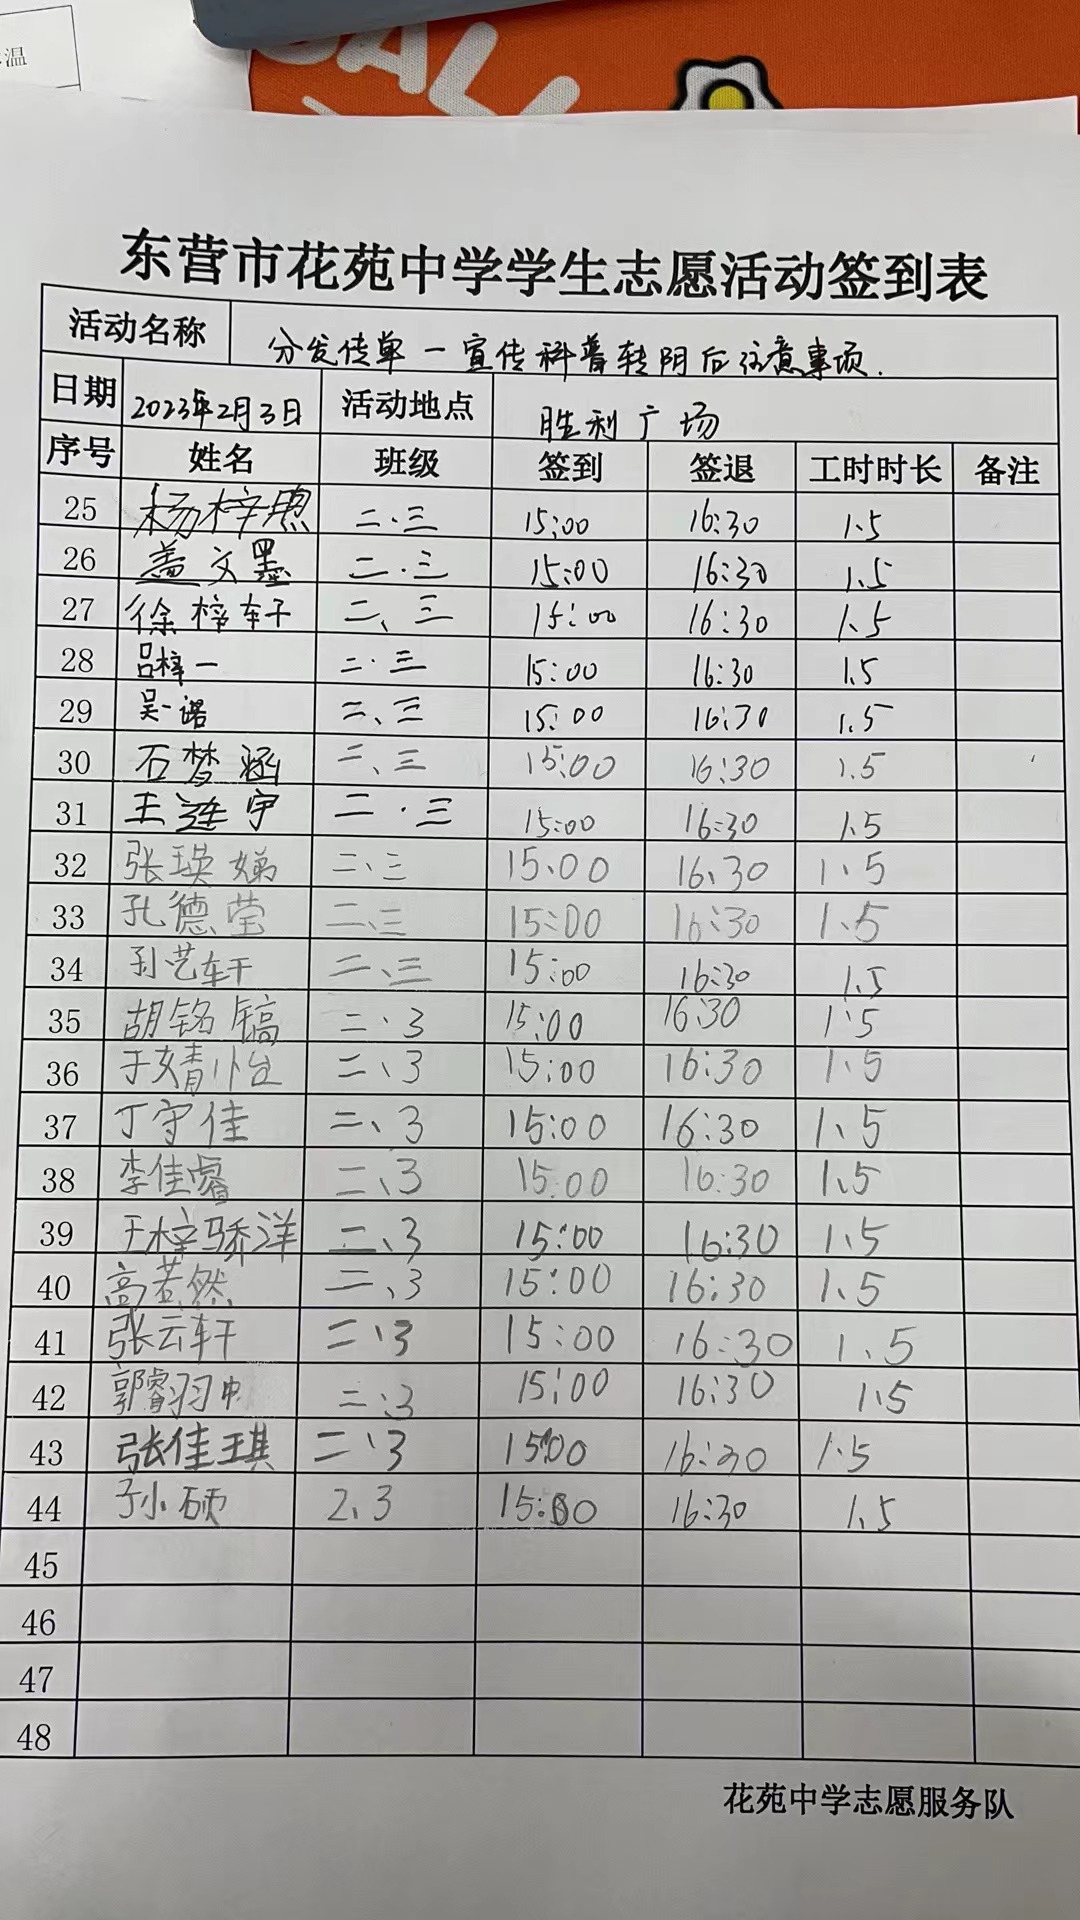 温
SAL
东营市花苑中学学生志愿活动签到表
活动名称 分发传单一宣传科普转阴后注意事项.
日期 2023年2月3日 活动地点 胜利广场
序号 姓名 班级 签到 签退 工时时长 备注
25 杨梓煦 二.三 15:00 16:30 1.5
26 盖文墨 二.三 15:00 16:30 1.5
27 徐梓轩 二、三 15:00 16:30 1.5
28 吕梓一 二.三 15:00 16:30 1.5
29 吴一诺 二、三 15:00 16:30 1.5
30 石梦涵 二、三 15:00 16:30 1.5
31 王涟宇 二.三 15:00 16:30 1.5
32 张瑛娣 二、三 15.00 16.30 1.5
33 孔德莹 二、三 15:00 16:30 1.5
34 孙艺轩 二、三 15:00 16:30 1.5
35 胡铭镐 二.3 15:00 16:30 1.5
36 于婧怡 二、3 15:00 16:30 1.5
37 丁守佳 二、3 15:00 16:30 1.5
38 李佳睿 二、3 15:00 16:30 1.5
39 王梓骄洋 二、3 15:00 16:30 1.5
40 高若然 二、3 15:00 16:30 1.5
41 张云轩 二、3 15:00 16:30 1.5
42 郭睿羽 二.3 15:00 16:30 1.5
43 张佳琪 二、3 15:00 16:30 1.5
44 孙小硕 2、3 15:00 16:30 1.5
45
46
47
48
花苑中学志愿服务队